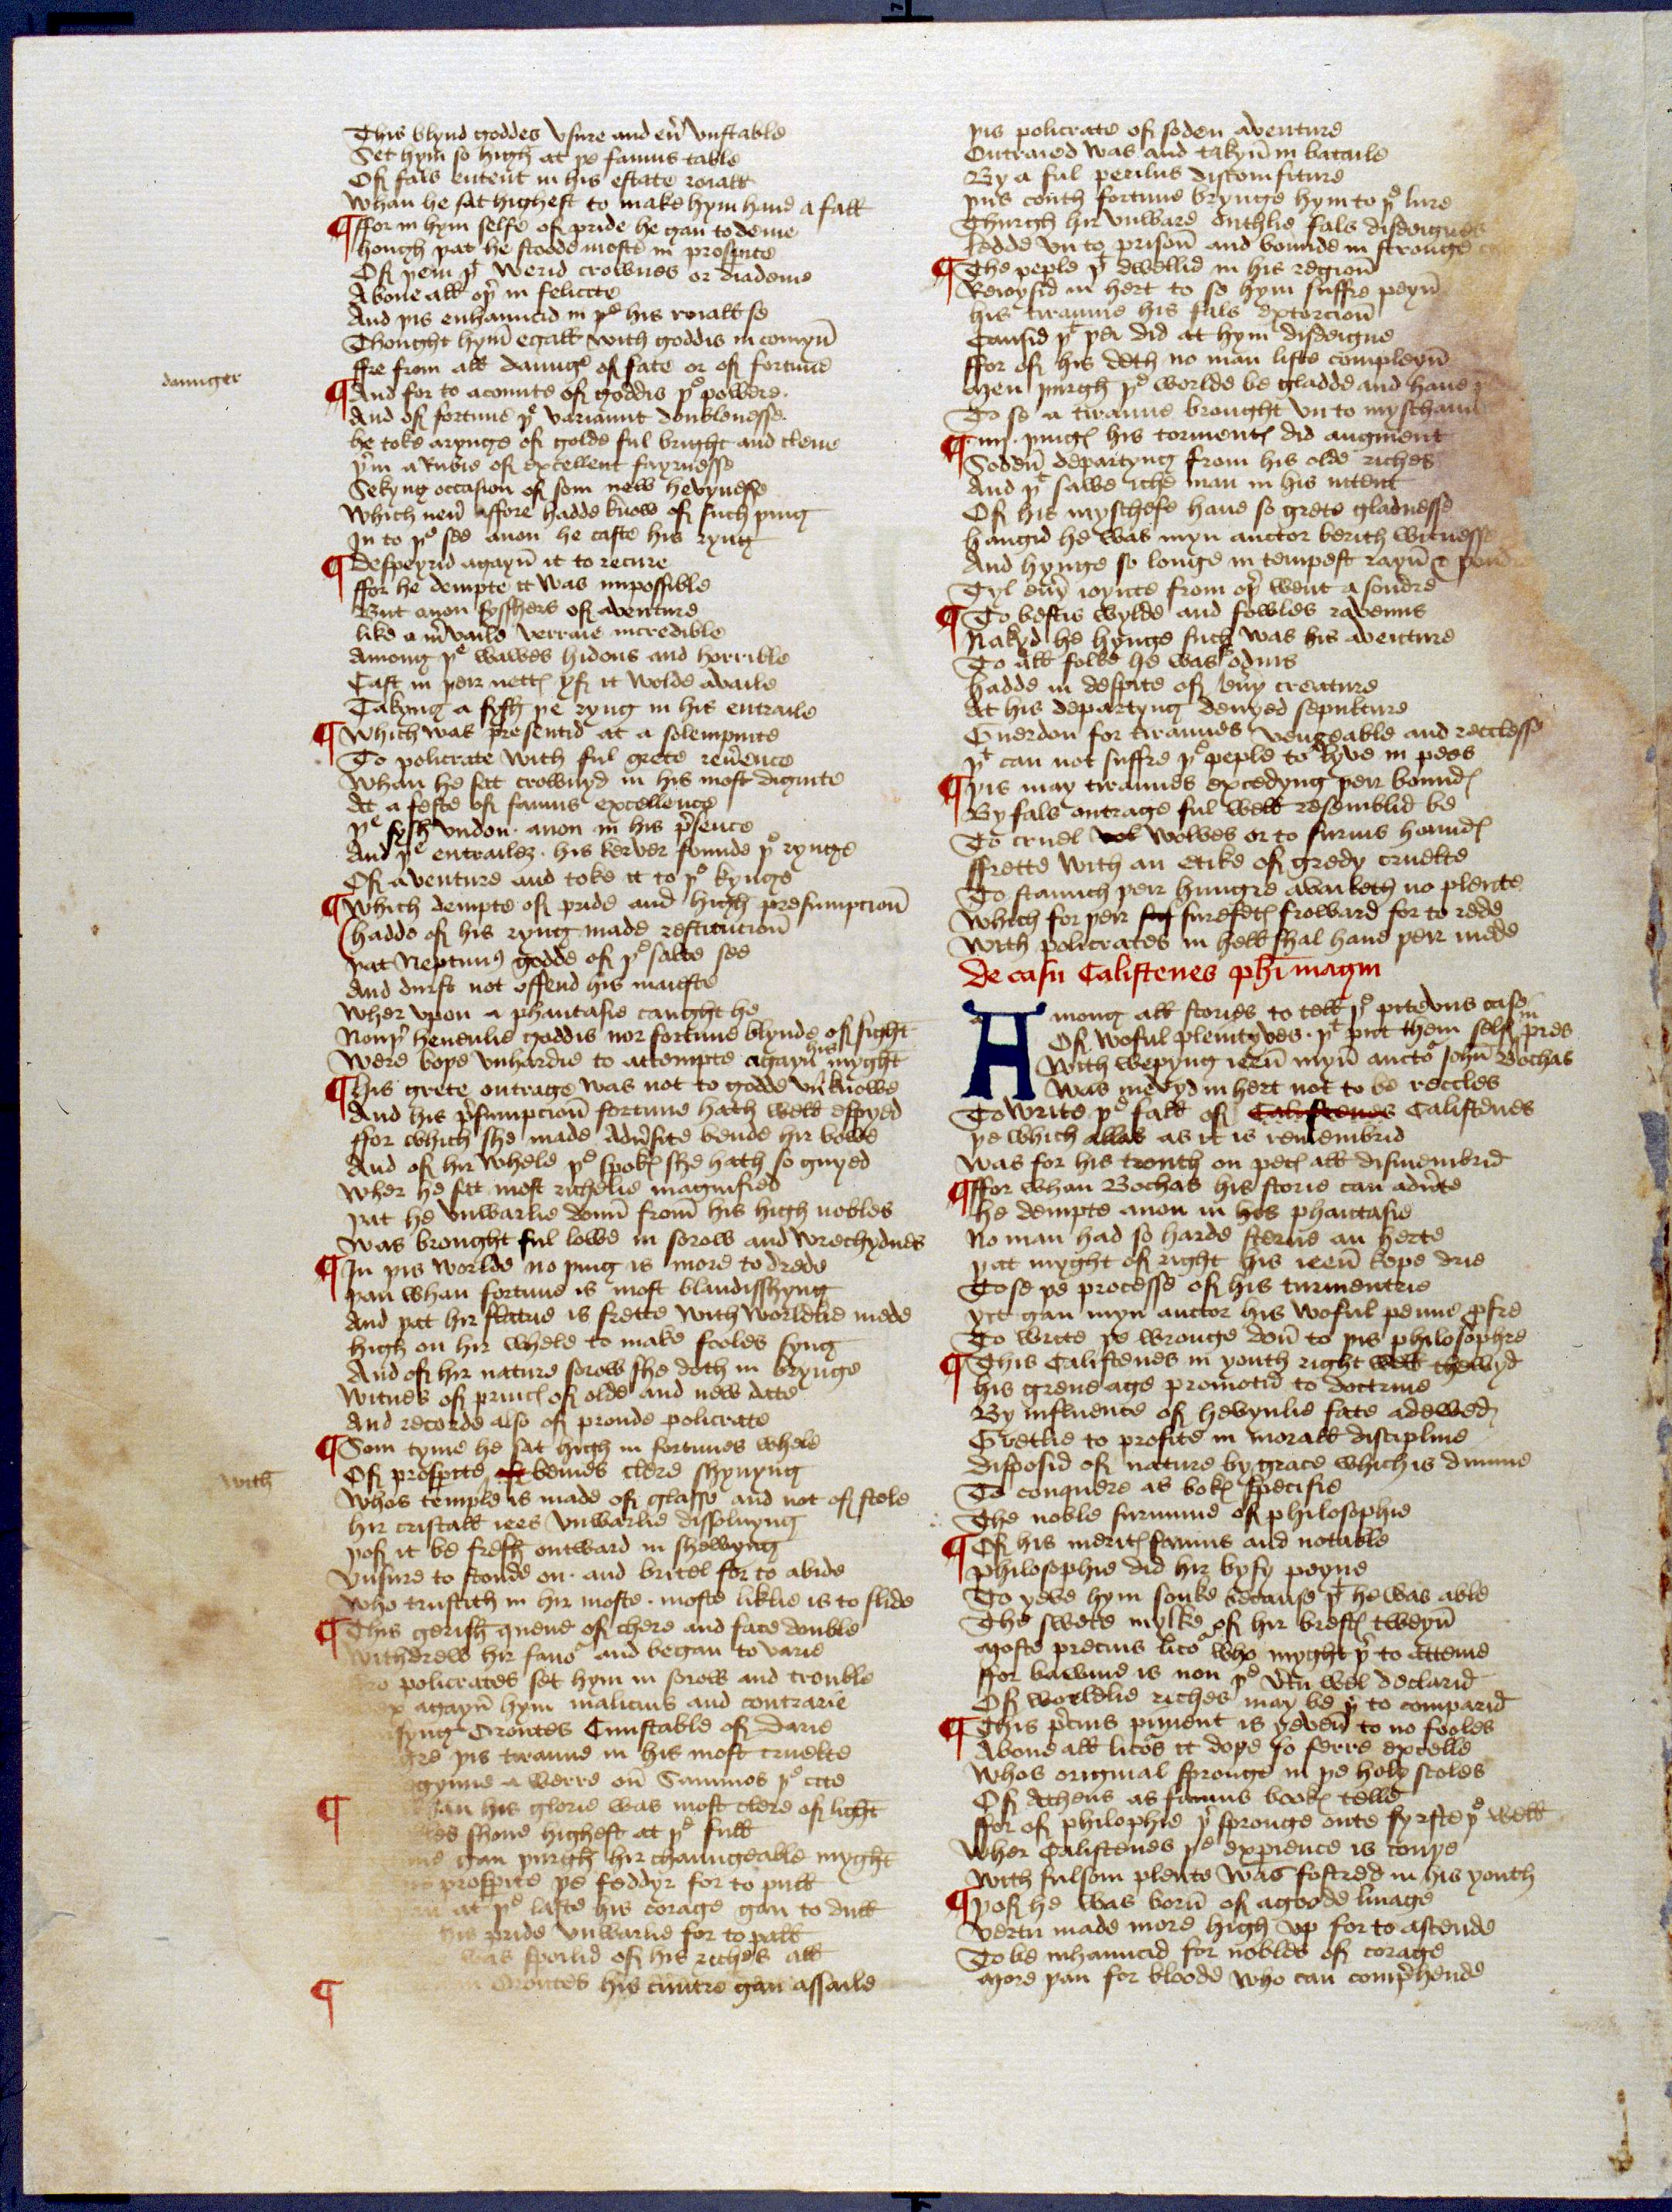 This blynd goddes vsure and eū vnstable
Set hym so high at þe famus table
Off fals entent in his estate roiall
Whan he sat highest to make hym haue a fall
¶ ffor in hym selfe off pride he gan to deme
hough þat he stoode moste in prosperite
Off þem þt werid crownes or diademe
Aboue all oþer in felicite
And þis enhauncid in þe his roiall se
Thought hym egall with goddis in comyn
ffre from all daunger off fate or off fortune
daunger
¶ And for to acounte off goddis þe powere
And off fortune þe variaunt doublenesse
he toke a rynge off golde ful bright and clene
þer in a Rubie off excellent fayrnesse
Sekyng occasion off som new hevynesse
Which neuer affore hadde know off such þing
In to þe see anon he caste his ryng
¶ Despeyrid agayn it to recure
ffor he dempte it was impossible
But anon fysshers off aventure
like a mervaile verraie incredible
Among þe wawes hidous and horrible
Cast in þeir nettes yff it wolde availe
Takyng a fyssh þe ryng in his entraile
¶ Which was presentid at a solempnite
To policrate with ful grete reuerence
Whan he satt crownyd in his most dignite
At a feste off famus excellence
þe fyssh vndon anon in his presence
And þe entrailez his kerver founde þe rynge
Off aventure and toke it to þe kynge
¶ Which dempte off pride and high presumpcion
hadde off his ryng made restitucion
þat Neptunus godde off þe salte see
And durst not offend his maieste
Wher vpon a phantasie caught he
Nouþer heuenlie goddis nor fortune blynde off sight
Were boþe vnhardie to attempte agayn his myght
¶ This grete outrage was not to godde vnknowe
And his presumpcion fortune hath well espyed
ffor which she made Aduersite bende hir bowe
And off hir whele þe spokes she hath so guyed
Wher he satt most richelie magnified
þat he vnwarlie doun from his high nobles
Was brought ful lowe in sorow and wrechydnes
¶ In þis worlde no þing is more to drede
þan whan fortune is most blaundisshyng
And þat hir flatrie is frette with worldlie mede
high on hir whele to make fooles syng
And off hir nature sorow she doth in brynge
Witnes off princes off olde and new date
And recorde also off proude policrate
¶ Som tyme he sat high in fortunes whele
Off prosperite bemes clere shynyng
with
Whos temple is made off glasse and not off stele
hir cristall iees vnwarlie dissoluyng
þoff it be fressh outward in shewyng
Vnsure to stonde on and britel for to abide
Who trustith in hir moste moste liklie is to slide
¶ This gerissh quene off chere and face double
Withdrew hir fauor and began to varie
policrates set hym in sorow and trouble
agayn hym malicius and contrarie
Orontes Cunstable off Darie
þis tiraunt in his most cruelte
a werre on Sammos þe cite
¶ his glorie was most clere off light
shone highest at þe full
gan þurgh hir chaungeable myght
prosperite þe feddyr for to pull
at þe laste his corage gan to dull
his pride vnwarlie for to pall
was spoilid off his riches all
¶ Orontes his cuntre gan assaile
þis policrate off soden aventure
Outraied was and takyn in bataile
By a ful perilus discomfiture
þus couth fortune brynge hym to þe lure
Thurgh hir vnware onthlie fals disdeignes
ledde vn to prison and bounde in stronge
¶ The peple þt dwellid in his region
Reioysid in hert to se hym suffre peyn
his tirannie his fals extorcion
Causid þt þei did at hym disdeigne
ffor off his deth no man liste compleyn
Men þurgh þe worlde be gladde and haue
To se a tiraune brought vn to myschaun
¶ iiij þinges his tormentes did augment
Soden departyng from his olde riches
And þt sawe iche man in his intent
Off his myschefe haue so grete gladnesse
hangid he was myn auctor berith witnesse
And hynge so longe in tempest rayn &
Tyl euery ioynte from oþer went a sondre
¶ To bestis wylde and fowles ravenus
Nakyd he hynge such was his aventure
To all folke he was odius
hadde in despite off euery creature
At his departyng denyed sepulture
Guerdon for tiraunes vengeable and recclesse
þt can not suffre þe peple to lyve in pees
¶ þis may tiraunes excedyng þeir boundes
By fals outrage ful well resemblid be
To cruel wolves or to furius houndes
ffrette with an etike off gredy cruelte
To staunch þeir hungre availeth no plente
Which for þeir surefetes froward for to rede
With policrates in hell shal haue þeir mede
De casu Calistenes phi magni
Among all stories to tell þe pitevus case
Off woful pleintyves þt put them selff in pres
With wepyng ieen myn auctor John Bochas
Was mevyd in hert not to be reccles
To write þe fall off Calistenes Calistenes
þe which allas as it is remembrid
Was for his trouth on peces all dismembrid
¶ ffor whan Bochas his storie can aduerte
he dempte anon in his phantasie
No man had so harde sterne an herte
þat myght off right his ieen kepe drie
To se þe processe off his turmentrie
yit gan myn auctor his woful penne profre
To write þe wronge don to þis philosophre
¶ This Calistenes in youth right well thewyd
his grene age promotid to doctrine
By influence off hevynlie fate adewed
Gretlie to profite in morall discipline
Disposid off nature by grace which is diuine
To conquere as bokes specifie
The noble surnume off philosophie
¶ Off his merites famus and notable
philosophie did hir bysy peyne
To yeve hym souke because þt he was able
The swete mylke off hir brestes tweyn
Moste precius licor who myght þer to atteine
ffor bawme is non þe vertu wel declarid
Off worldlie riches may be þer to comparid
¶ This precius piment is yeven to no fooles
Aboue all licors it doþe so ferre excelle
Whos original spronge in þe holy scoles
Off Athens as famus bookes telle
ffor off philophie þer spronge oute fyrste þe well
Wher Calistenes þe experience is couþe
With fulsom plente was fostred in his youth
¶ þoff he was born off a goode linage
Vertu made more high vp for to ascende
To be inhauncid for nobles off corage
More þan for bloode who can comprehende